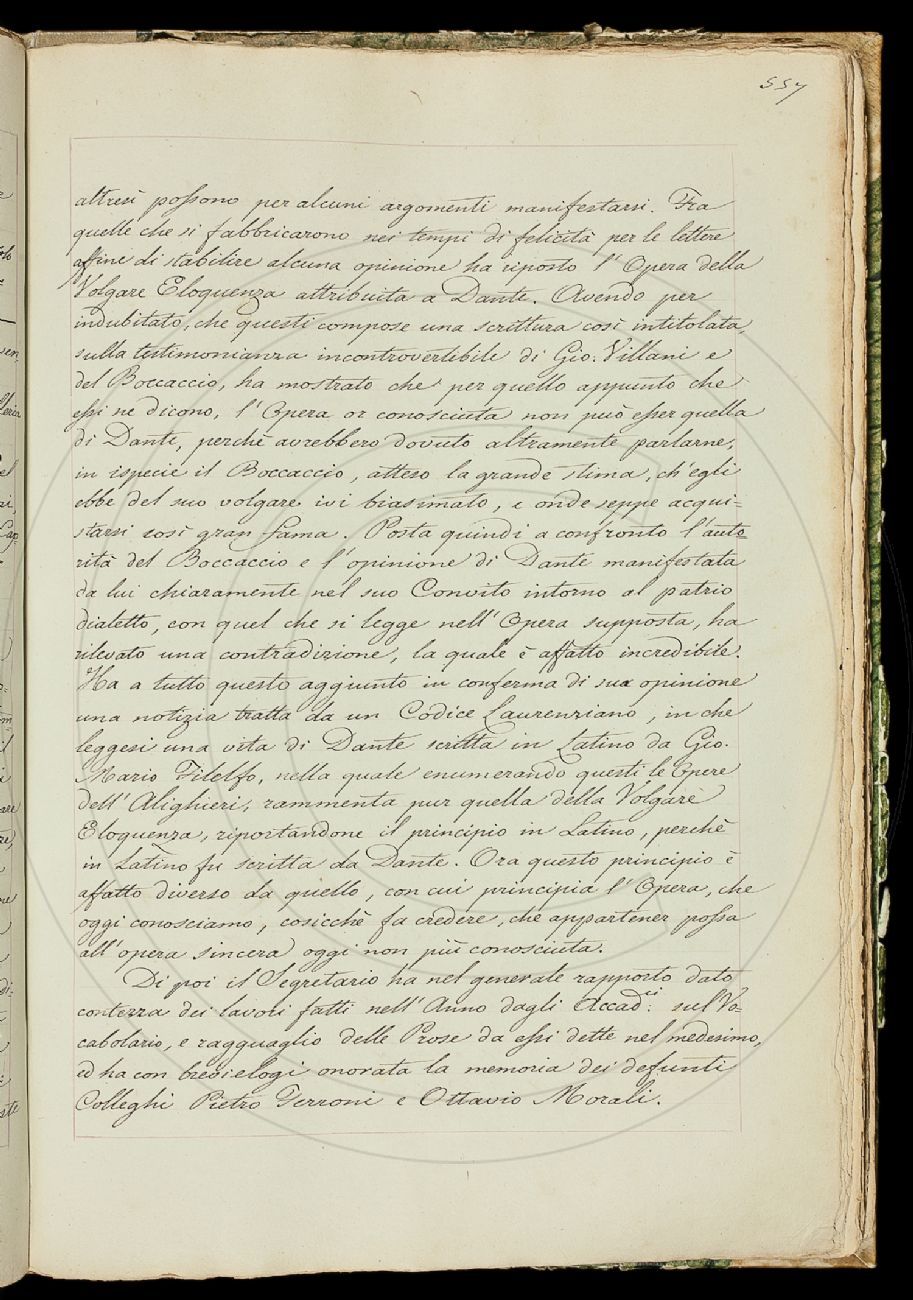 557
altresì possono per alcuni argomenti manifestarsi. Fra
quelle che si fabbricarono nei tempi di felicità per le lettere
affine di stabilire alcuna opinione ha riposto l'Opera della
Volgare Eloquenza attribuita a Dante. Avendo per
indubitato, che questi compose una scrittura così intitolata,
sulla testimonianza incontrovertibile di Gio. Villani e
del Boccaccio, ha mostrato che per quello appunto che
essi ne dicono, l'Opera or conosciuta non può esser quella
di Dante, perchè avrebbero dovuto altramente parlarne,
in ispecie il Boccaccio, atteso la grande stima, ch'egli
ebbe del suo volgare ivi biasimato, e onde seppe acqui-
starsi così gran fama. Posta quindi a confronto l'auto-
rità del Boccaccio e l'opinione di Dante manifestata
da lui chiaramente nel suo Convito intorno al patrio
dialetto, con quel che si legge nell'Opera supposta, ha
rilevato una contradizione, la quale è affatto incredibile.
Ha a tutto questo aggiunto in conferma di sua opinione
una notizia tratta da un Codice Laurenziano, in che
leggesi una vita di Dante scritta in Latino da Gio.
Mario Filelfo, nella quale enumerando questi le Opere
dell'Alighieri, rammenta pur quella della Volgare
Eloquenza, riportandone il principio in Latino, perchè
in Latino fu scritta da Dante. Ora questo principio è
affatto diverso da quello, con cui principia l'Opera, che
oggi conosciamo, cosicchè fa credere, che appartener possa
all'opera sincera oggi non più conosciuta.
Di poi il Segretario ha nel generale rapporto dato
contezza dei lavori fatti nell'Anno dagli Accad.ci sul Vo-
cabolario, e ragguaglio delle Prose da essi dette nel medesimo,
ed ha con brevi elogi onorata la memoria dei defunti
Colleghi Pietro Ferroni e Ottavio Morali.